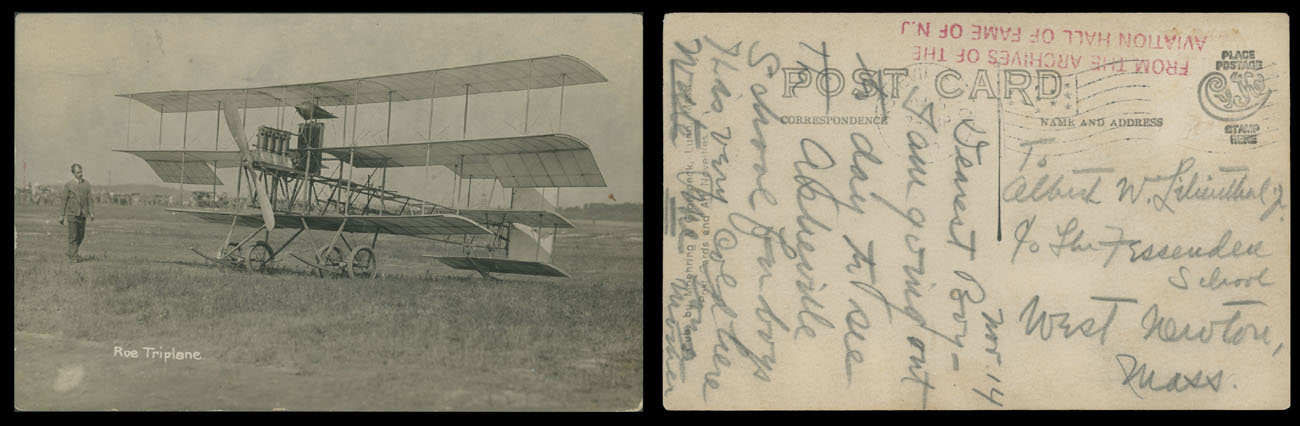 Roe Triplane.
FROM THE ARCHIVES OF THE
AVIATION HALL OF FAME OF N.J.
POST CARD
CORRESPONDENCE
NAME AND ADDRESS
PLACE
POSTAGE
STAMP
HERE
Nov. 14
Dearest Boy -
I am going out
to day to see
The Asheville
School for boys
It is very cold here
Write me
Mother
To
Albert W. Lilienthal Jr.
c/o The Fessenden
School
West Newton,
Mass.